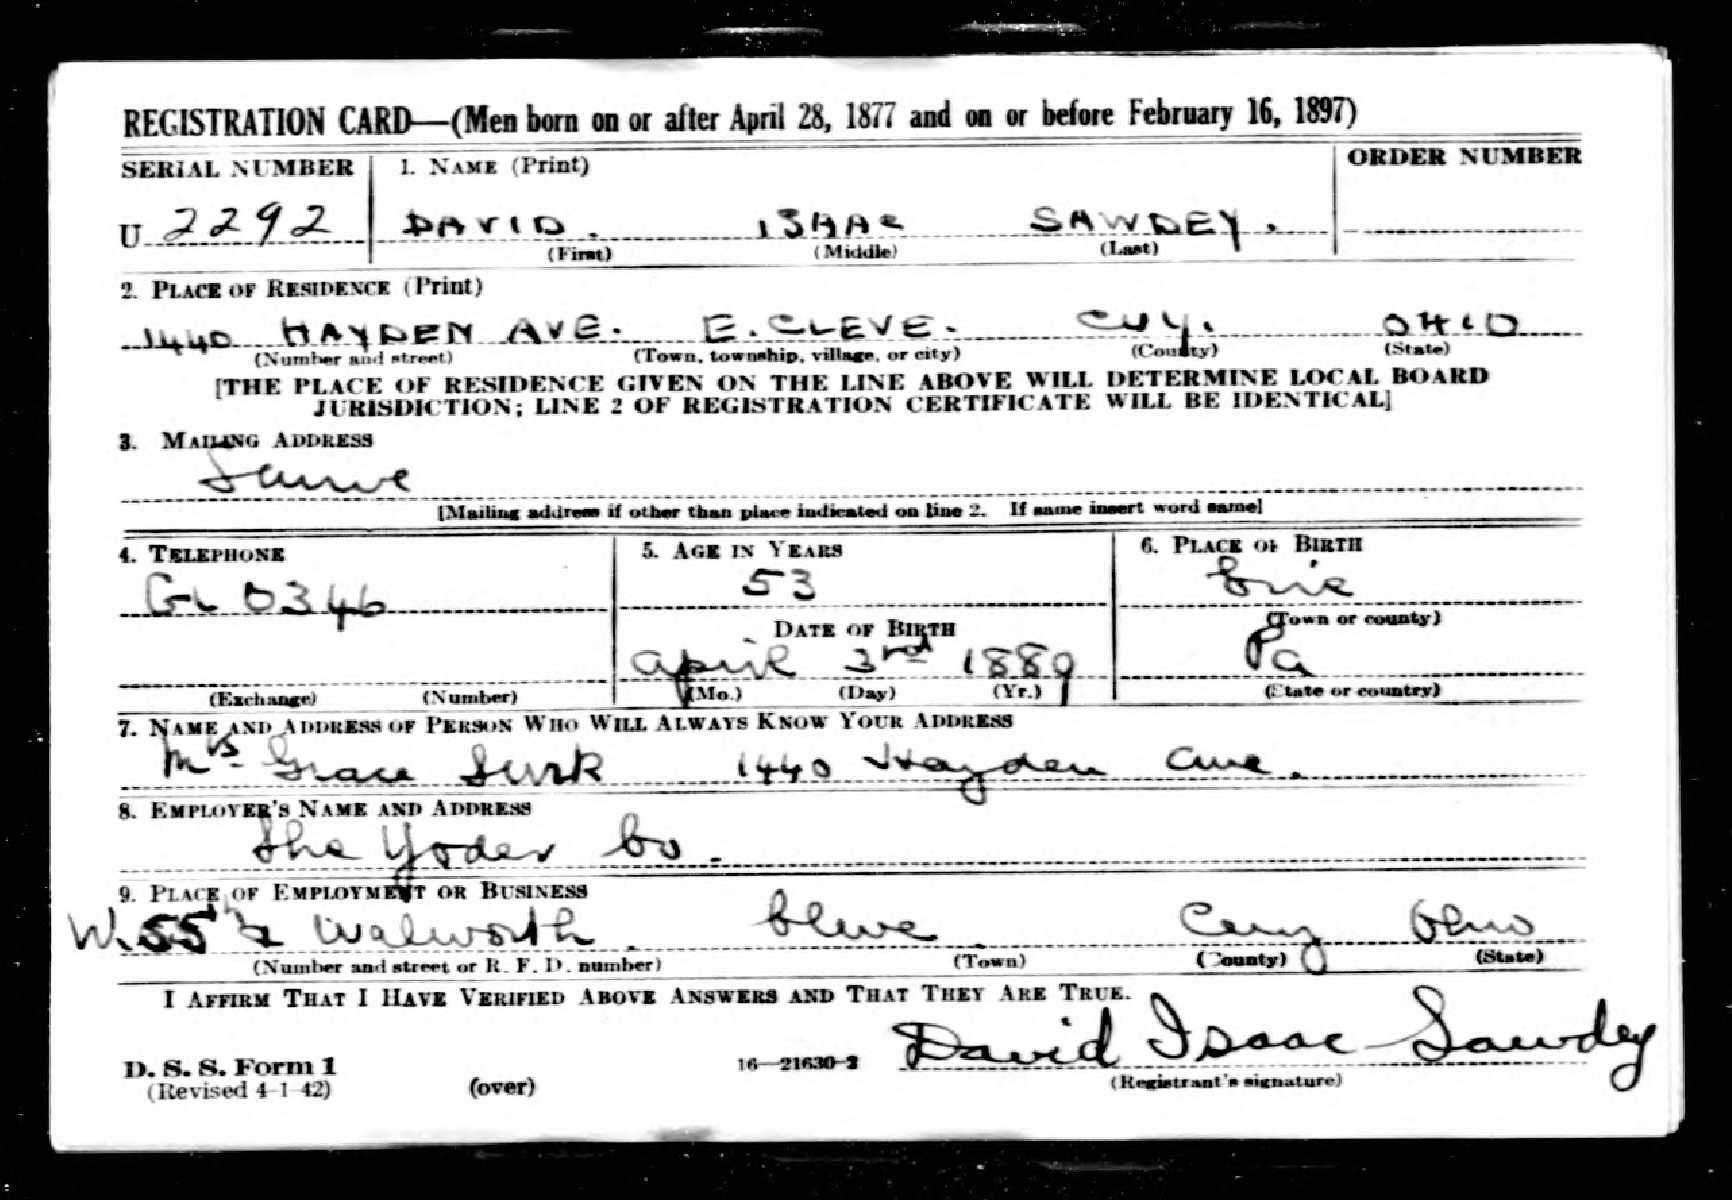 REGISTRATION CARD—(Men born on or after April 28, 1877 and on or before February 16, 1897)
SERIAL NUMBER 1. NAME (Print) ORDER NUMBER
U 2292 DAVID. ISAAC SAWDEY.
(First) (Middle) (Last)
2. PLACE OF RESIDENCE (Print)
1440 HAYDEN AVE. E. CLEVE. CUY. OHIO
(Number and street) (Town, township, village, or city) (County) (State)
[THE PLACE OF RESIDENCE GIVEN ON THE LINE ABOVE WILL DETERMINE LOCAL BOARD
JURISDICTION; LINE 2 OF REGISTRATION CERTIFICATE WILL BE IDENTICAL]
3. MAILING ADDRESS
Same
[Mailing address if other than place indicated on line 2. If same insert word same]
4. TELEPHONE 5. AGE IN YEARS 6. PLACE OF BIRTH
GL 0346 53 Erie
DATE OF BIRTH (Town or county)
April 3rd 1889 Pa
(Exchange) (Number) (Mo.) (Day) (Yr.) (State or country)
7. NAME AND ADDRESS OF PERSON WHO WILL ALWAYS KNOW YOUR ADDRESS
Mrs. Grace 1440 Hayden Ave.
8. EMPLOYER'S NAME AND ADDRESS
The Yoder Co.
9. PLACE OF EMPLOYMENT OR BUSINESS
W. 55th & Walworth. Cleve. Cuy Ohio
(Number and street or R. F. D. number) (Town) (County) (State)
I AFFIRM THAT I HAVE VERIFIED ABOVE ANSWERS AND THAT THEY ARE TRUE.
David Isaac Sawdey
D. S. S. Form 1 16—21630-2 (Registrant's signature)
(Revised 4-1-42) (over)